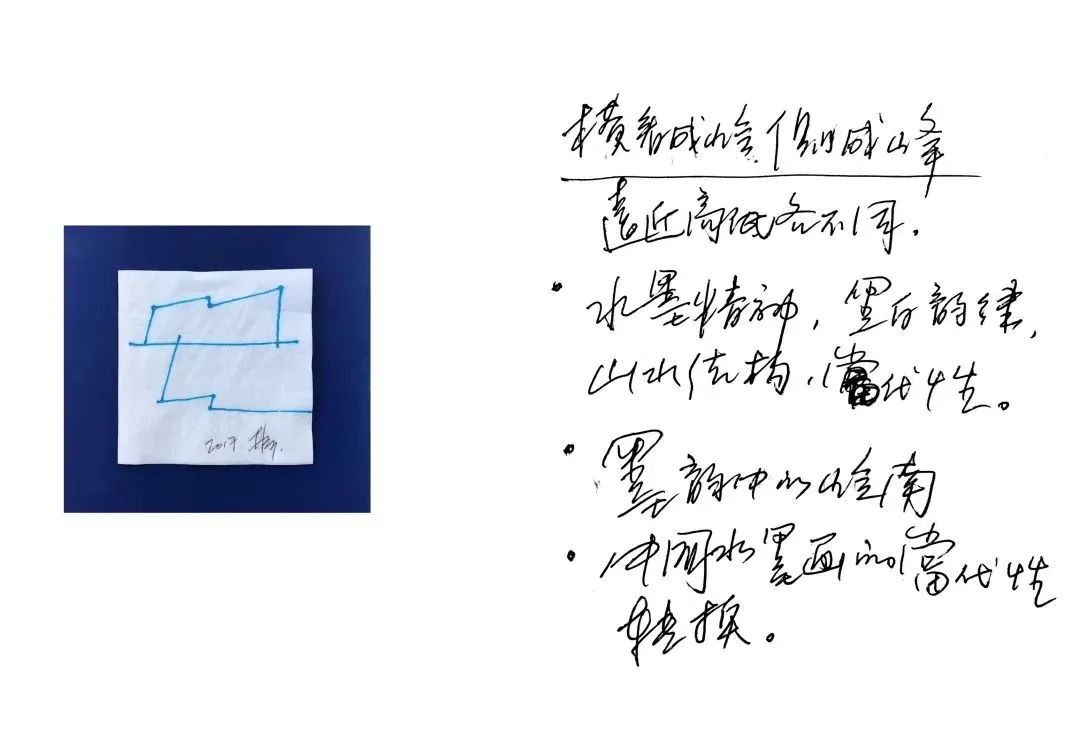 2017.
横看成岭侧成峰
遠近高低各不同.
• 水墨精神，黑白韵律，
山水结构，當代性。
• 墨韵中的岭南
• 中国水墨画的當代性
转换。